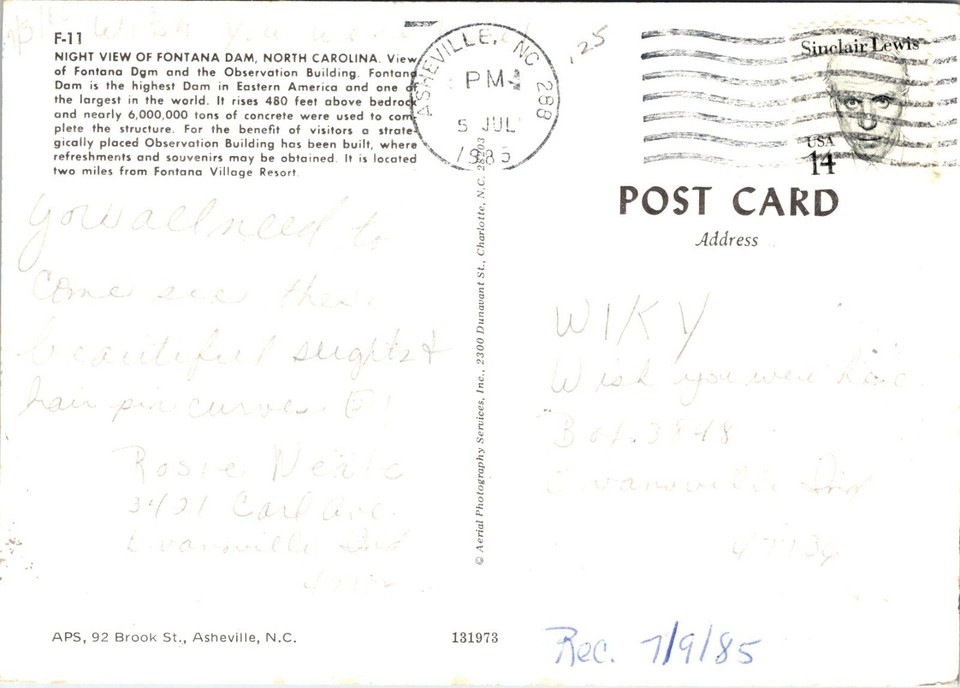 Wish you were
F-11
NIGHT VIEW OF FONTANA DAM, NORTH CAROLINA. View
of Fontana Dam and the Observation Building. Fontana
Dam is the highest Dam in Eastern America and one of
the largest in the world. It rises 480 feet above bedrock
and nearly 6,000,000 tons of concrete were used to com-
plete the structure. For the benefit of visitors a strate-
gically placed Observation Building has been built, where
refreshments and souvenirs may be obtained. It is located
two miles from Fontana Village Resort.
you all need to
come see these
beautiful sights &
hair pin curves
Rosie
Carl Ave.
Evansville Ind
APS, 92 Brook St., Asheville, N.C.
© Aerial Photography Services, Inc., 2300 Dunavant St., Charlotte, N.C. 28203
131973
ASHEVILLE, NC 288
PM
5 JUL
1985
25
Sinclair Lewis
USA
14
POST CARD
Address
WIKY
Wish you were here
Box 3848
Evansville Ind
Rec. 7/9/85